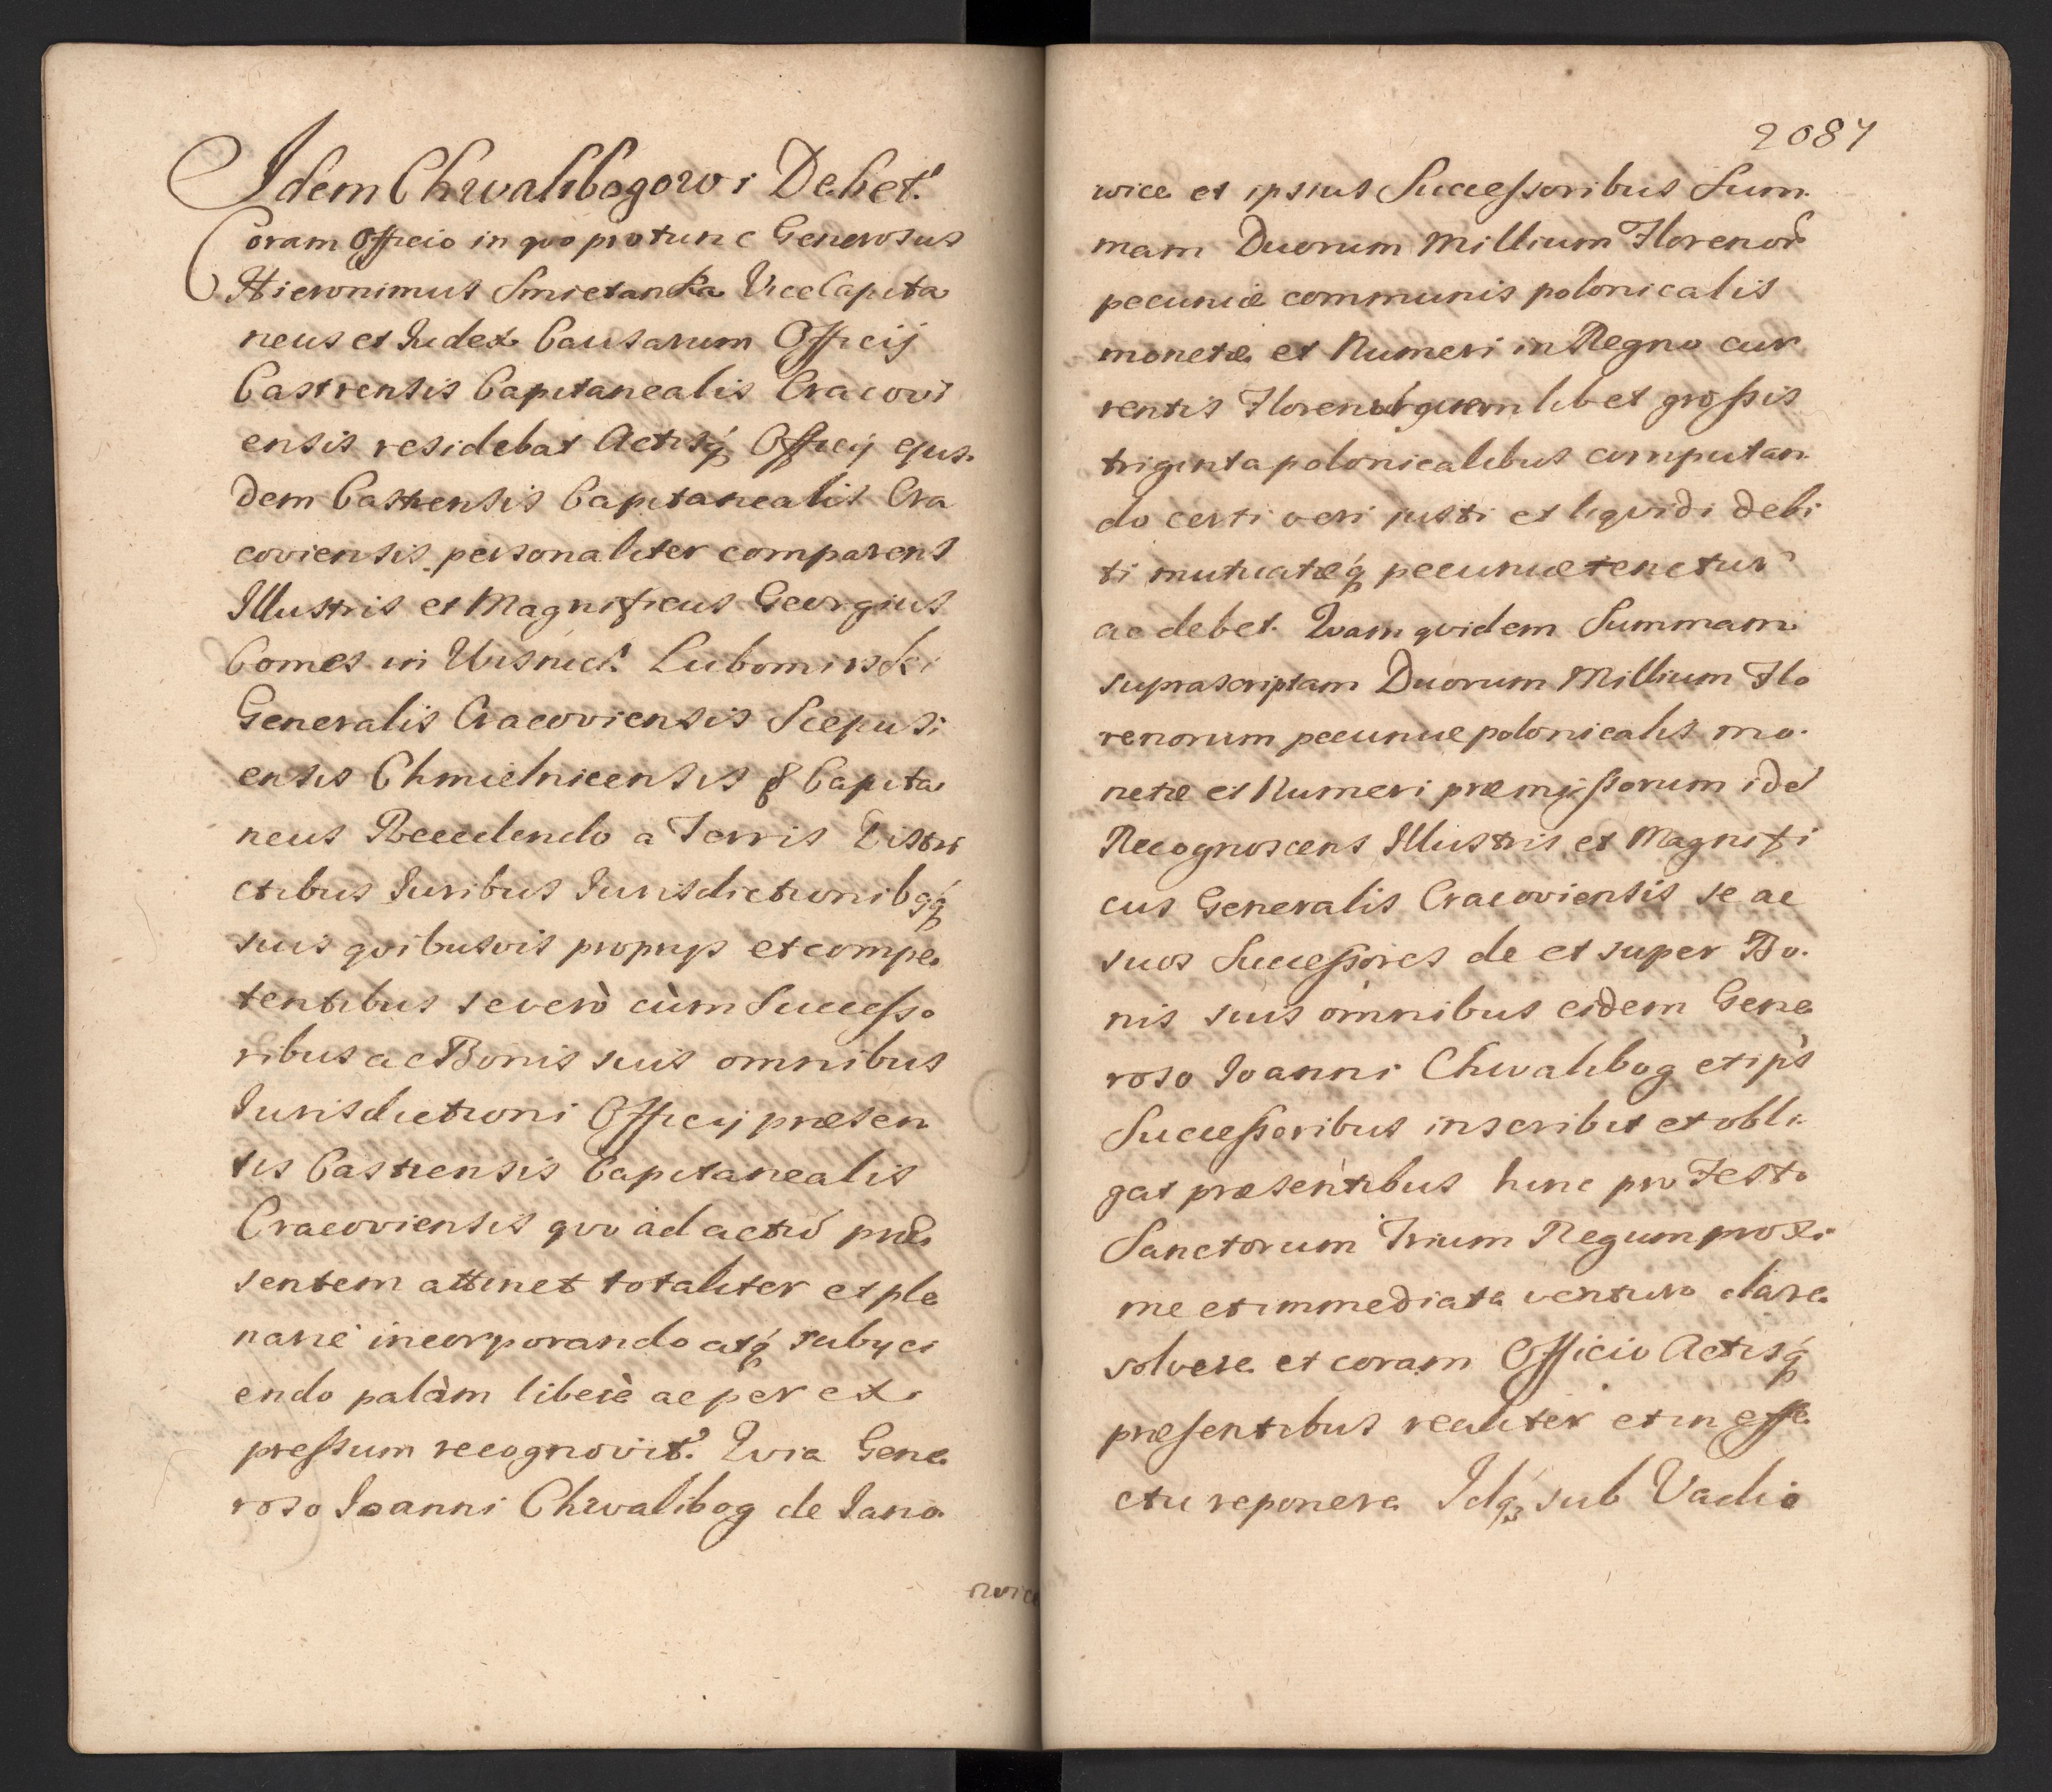 Idem Chwalibogowi Debet.
Coram Officio in quo pro tunc Generosus
Hieronimus Smietanka ViceCapita
neus et Iudex Causarum Officij
Castrensis Capitanealis Cracovi
ensis residebat Actisq́ Officij ejus
dem Castrensis Capitanealis Cra
coviensis personaliter comparens
Illustris et Magnificus Georgius
Comes in Wisnicz Lubomirski
Generalis Cracoviensis Scepusi
ensis Chmielnicensis & Capita
neus Recedendo a Terris Distri
ctibus Iuribus Iurisdictionibgq́
suis quibusvis proprijs et compe
tentibus se verò cùm Successo
ribus ac Bonis suis omnibus
Iurisdictioni Officij præsen
tis Castrensis Capitanealis
Cracoviensis quo ad actū præ
sentem attinet totaliter et ple
nariè incorporando atq́ subijci
endo palàm liberè ac per ex
pressum recognovit. Quia Gene
roso Ioanni Chwalibog de Iano
wice
2087
wice et ipsius Successoribus Sum
mam Duorum Millium Florenor
pecuniæ communis polonicalis
monetæ et Numeri in Regno cur
rentis Floren quemlibet grossis
triginta polonicalibus computan
do certi veri justi et liquidi debi
ti mutuatæq́ pecuniæ tenetur
ac debet. Quam quidem Summam
suprascriptam Duorum Millium Flo
renorum pecuniæ polonicalis mo
netæ et Numeri præmissorum idē
Recognoscens Illustris et Magnifi
cus Generalis Cracoviensis se ac
suos Successores de et super Bo
nis suis omnibus eidem Gene
roso Ioanni Chwalibog et ips
Successoribus inscribit et obli
gat præsentibus hinc pro Festo
Sanctorum Trium Regum proxi
me et immediate venturo dare
solvere et coram Officio Actisq́
præsentibus realiter et in effe
ctu reponere Idq́ sub Vadio